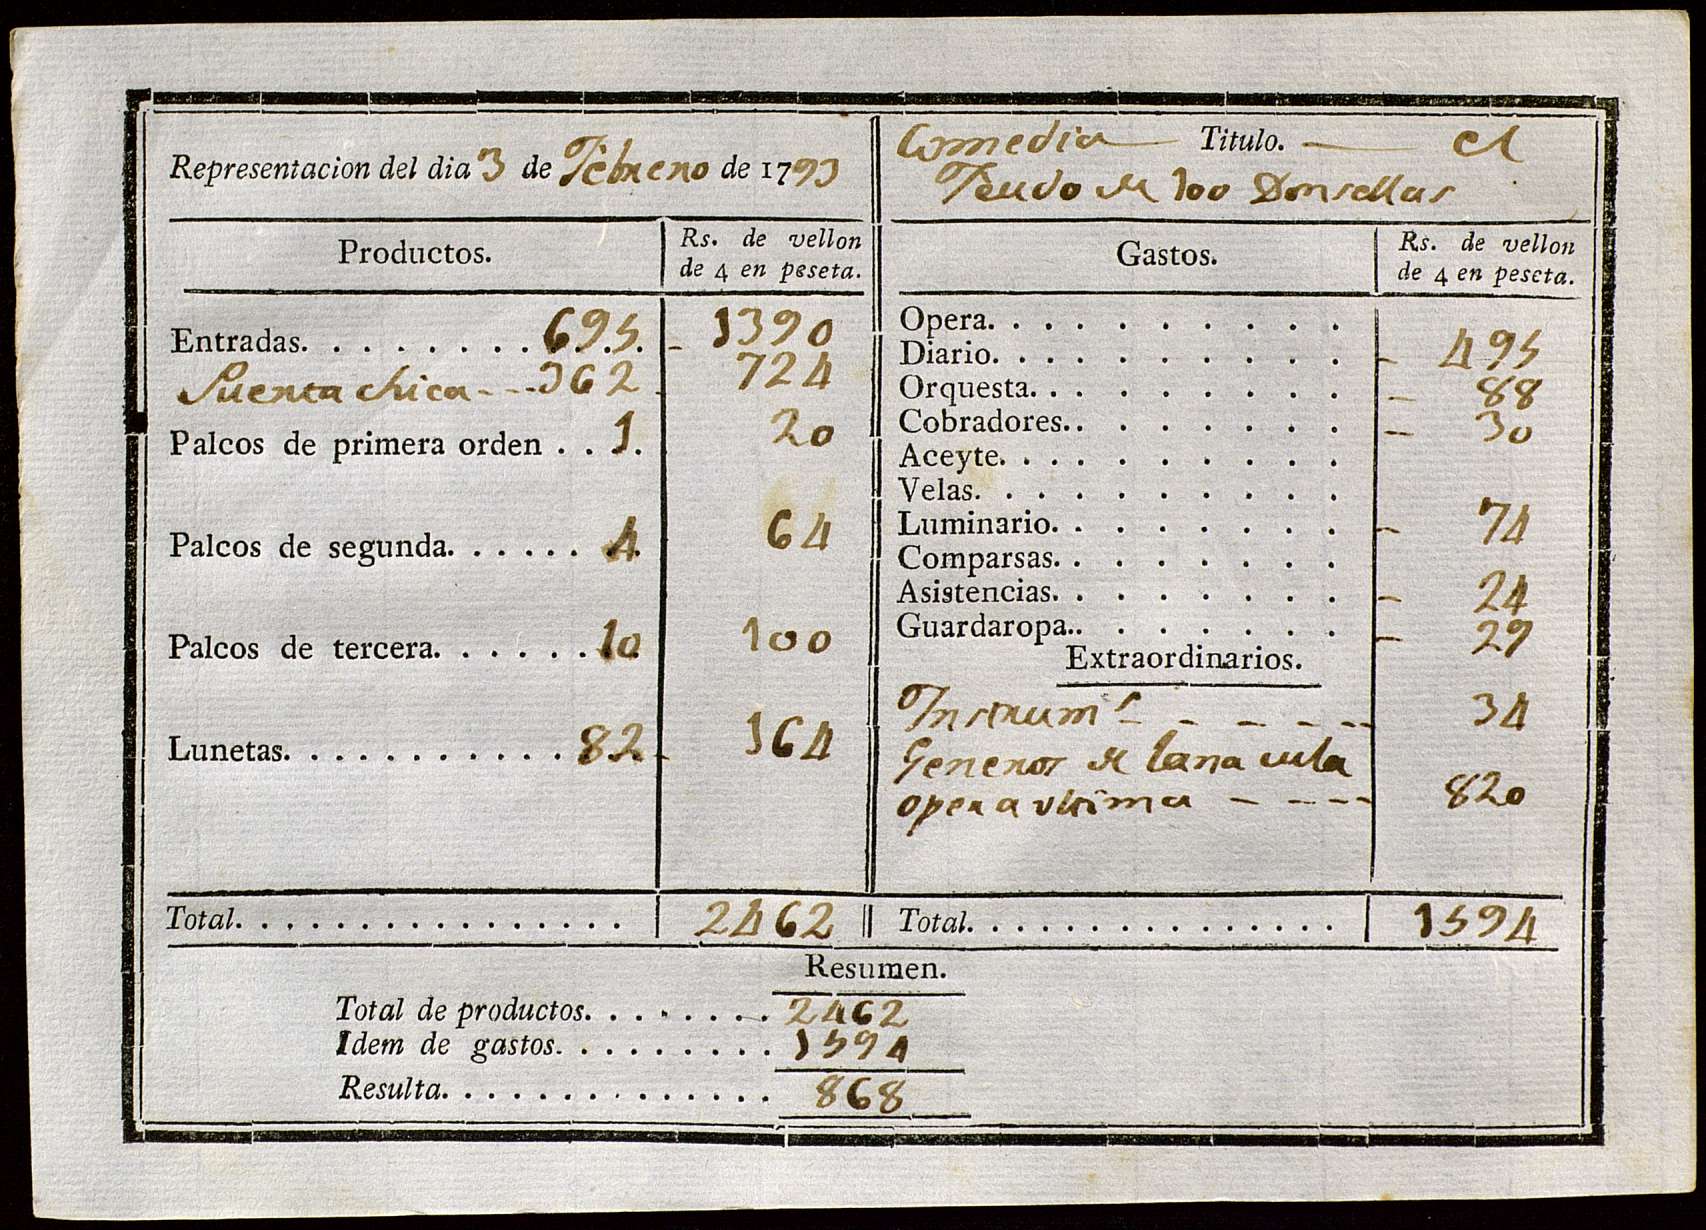 Representacion del dia 3 de Febrero de 1793
Comedia Titulo. el
Feudo de 100 Donsellas
Productos. Rs. de vellon de 4 en peseta.
Entradas. 695. 1390
Puerta chica 362 724
Palcos de primera orden 1. 20
Palcos de segunda. 4 64
Palcos de tercera. 10 100
Lunetas. 82 164
Total. 2462
Gastos. Rs. de vellon de 4 en peseta.
Opera.
Diario. 495
Orquesta. 88
Cobradores. 30
Aceyte.
Velas.
Luminario. 74
Comparsas.
Asistencias. 24
Guardaropa. 29
Extraordinarios.
Instrumts 34
Generos de lana de la
opera vltima 820
Total. 1594
Resumen.
Total de productos. 2462
Idem de gastos. 1594
Resulta. 868